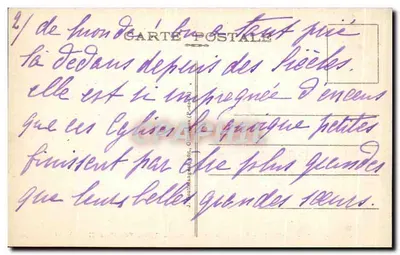 2/ de monde! On a tant prié
CARTE POSTALE
là dedans depuis des siècles.
elle est si imprégnée d'encens
que ces Eglises là quoique petites
finissent par être plus grandes
que leurs belles grandes sœurs.